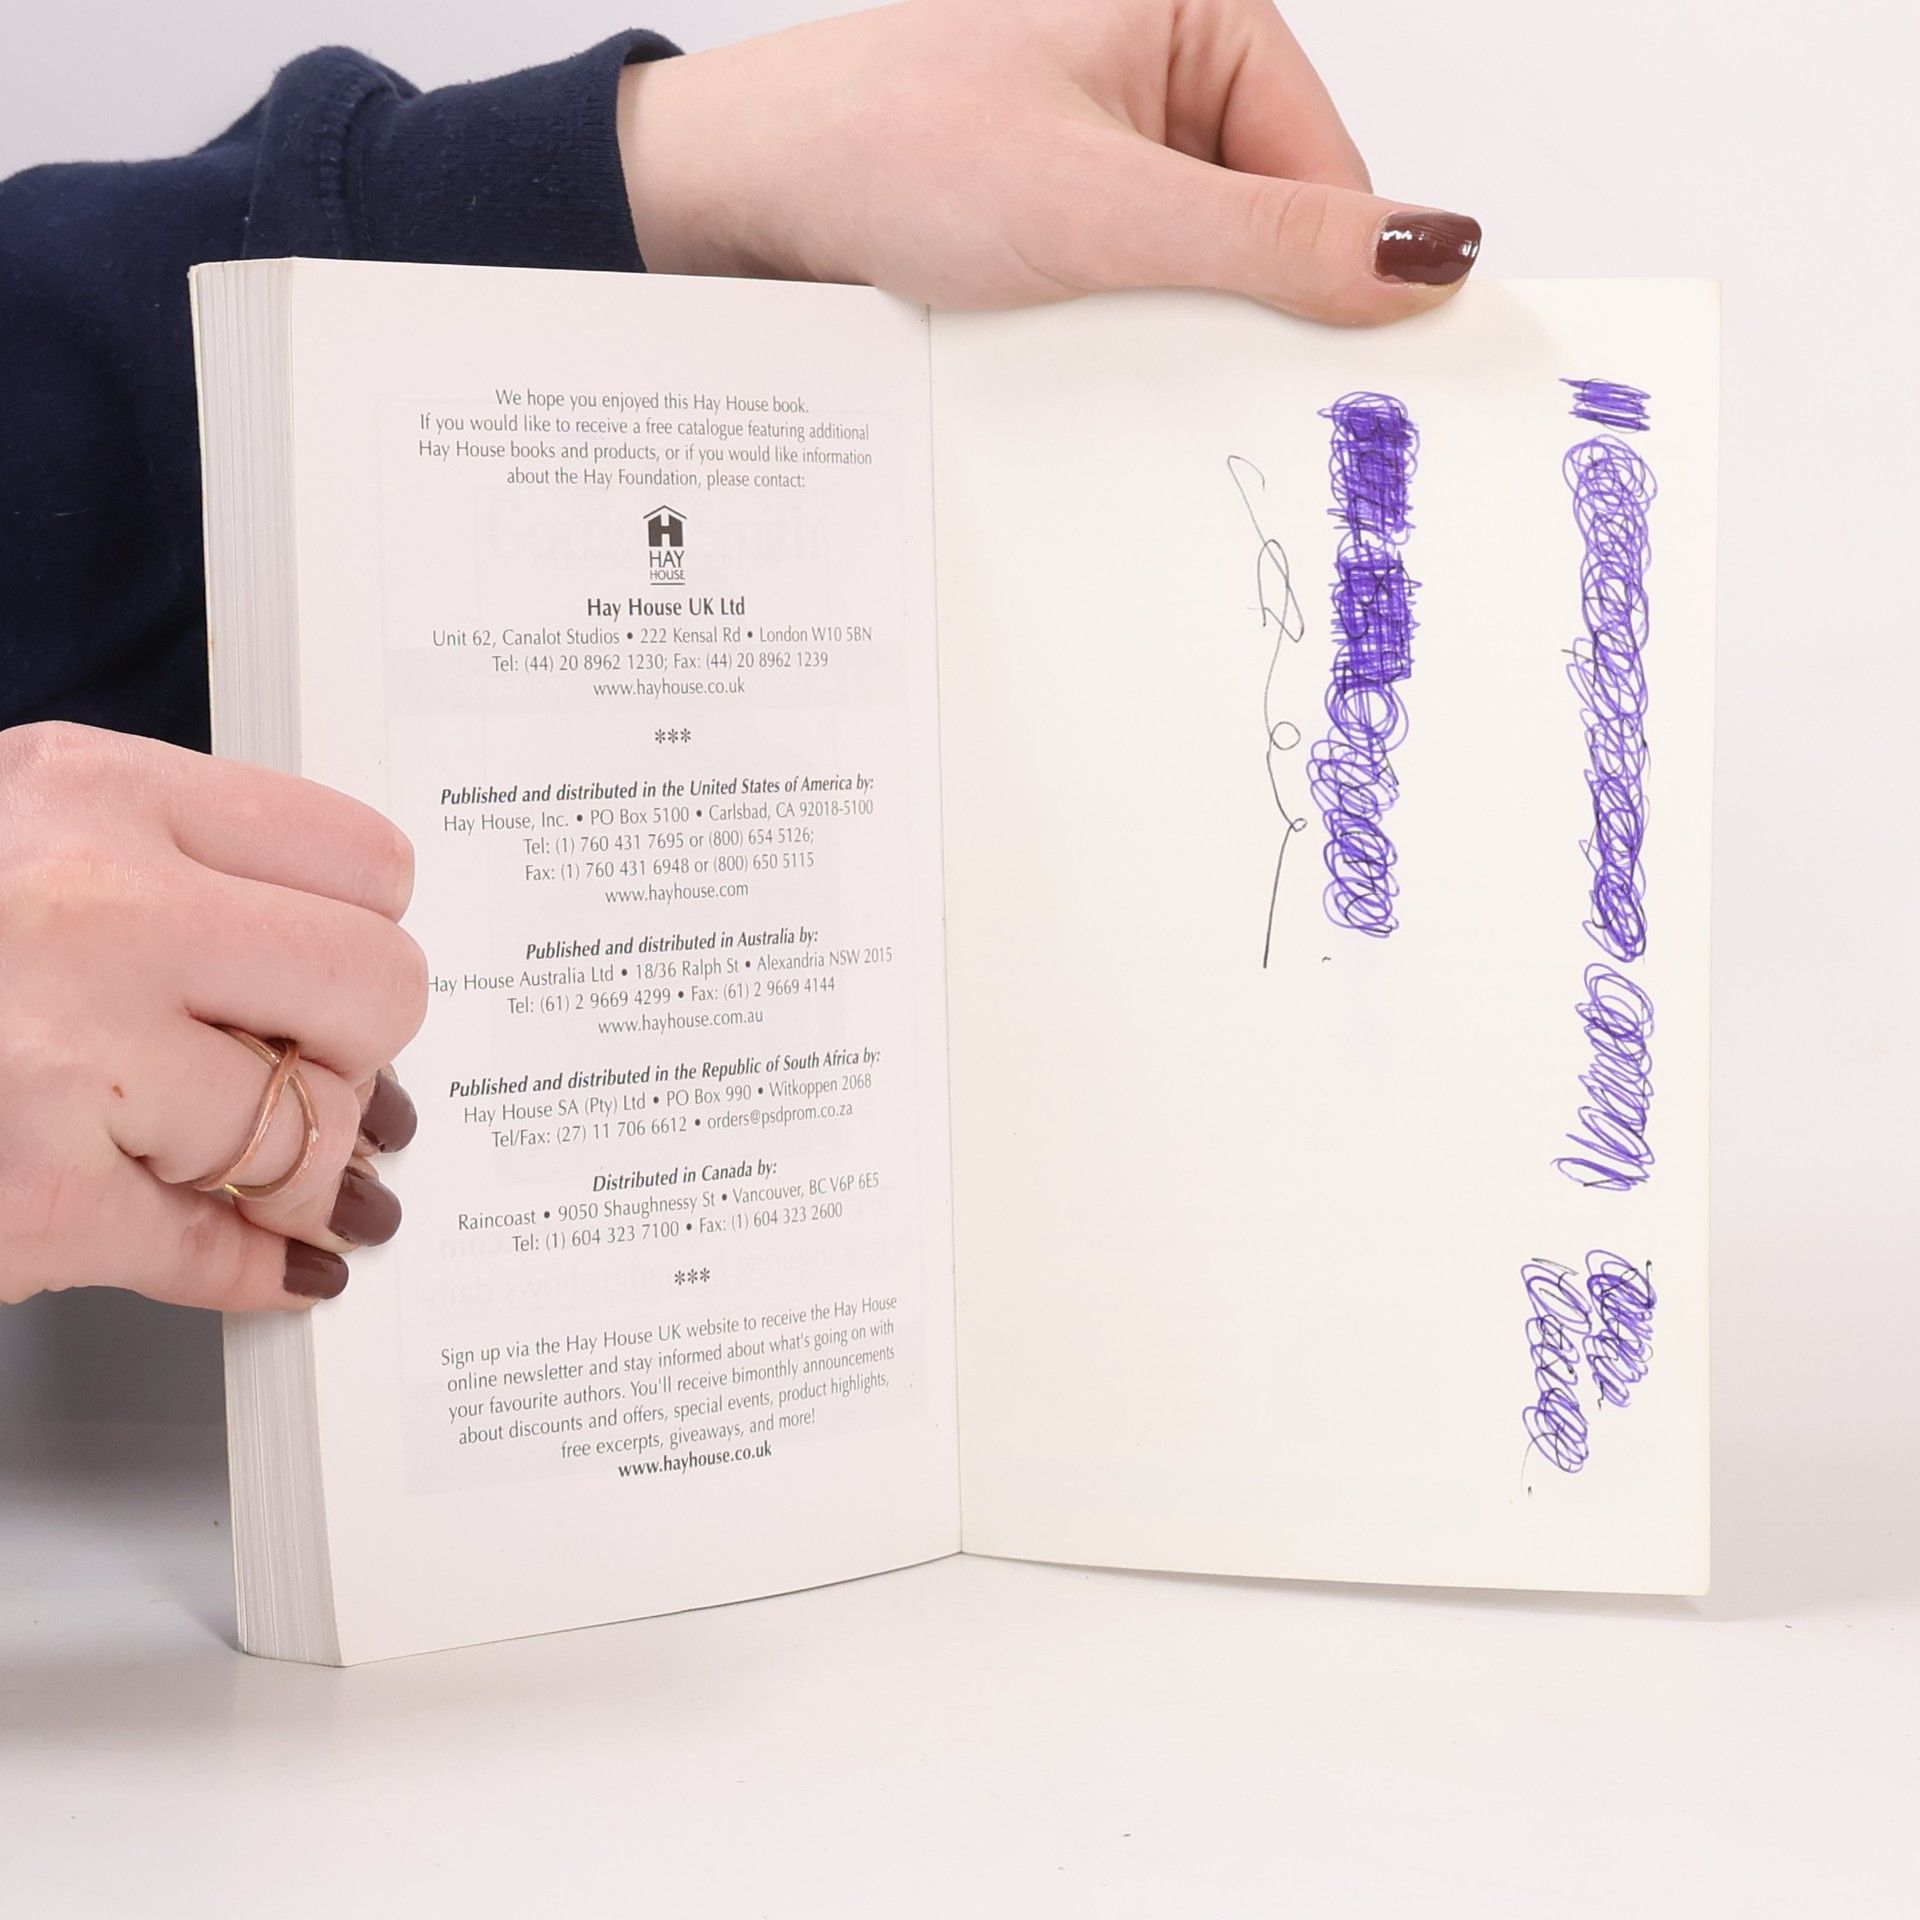 We hope you enjoyed this Hay House book.
If you would like to receive a free catalogue featuring additional
Hay House books and products, or if you would like information
about the Hay Foundation, please contact:
HAY
HOUSE
Hay House UK Ltd
Unit 62, Canalot Studios • 222 Kensal Rd • London W10 5BN
Tel: (44) 20 8962 1230; Fax: (44) 20 8962 1239
www.hayhouse.co.uk
***
Published and distributed in the United States of America by:
Hay House, Inc. • PO Box 5100 • Carlsbad, CA 92018-5100
Tel: (1) 760 431 7695 or (800) 654 5126;
Fax: (1) 760 431 6948 or (800) 650 5115
www.hayhouse.com
Published and distributed in Australia by:
Hay House Australia Ltd • 18/36 Ralph St • Alexandria NSW 2015
Tel: (61) 2 9669 4299 • Fax: (61) 2 9669 4144
www.hayhouse.com.au
Published and distributed in the Republic of South Africa by:
Hay House SA (Pty) Ltd • PO Box 990 • Witkoppen 2068
Tel/Fax: (27) 11 706 6612 • orders@psdprom.co.za
Distributed in Canada by:
Raincoast • 9050 Shaughnessy St • Vancouver, BC V6P 6E5
Tel: (1) 604 323 7100 • Fax: (1) 604 323 2600
***
Sign up via the Hay House UK website to receive the Hay House
online newsletter and stay informed about what's going on with
your favourite authors. You'll receive bimonthly announcements
about discounts and offers, special events, product highlights,
free excerpts, giveaways, and more!
www.hayhouse.co.uk